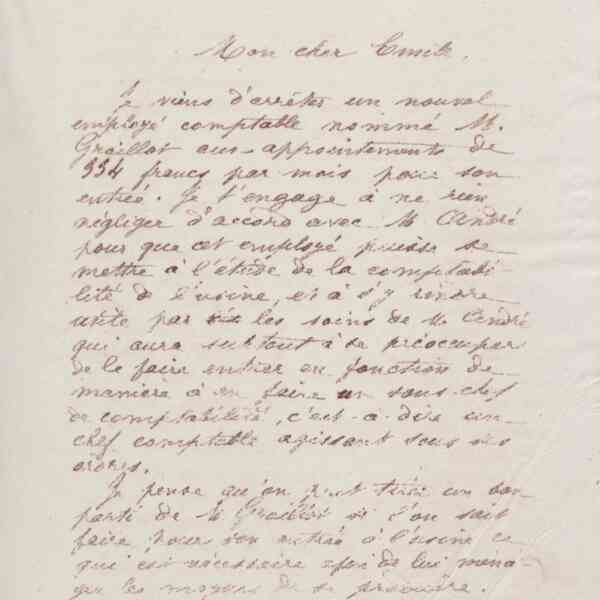 Mon cher Emile,
Je viens d'arrêter un nouvel
employé comptable nommé M.
Graillot aux appointements de
334 francs par mois pour son
entrée. Je t'engage à ne rien
négliger d'accord avec M. André
pour que cet employé puisse se
mettre à l'étude de la comptabi-
lité de l'usine, et à s'y rendre
utile par les soins de M. André
qui aura surtout à se préoccuper
de le faire entrer en fonction de
manière à en faire un sous-chef
de comptabilité, c'est-à-dire un
chef comptable agissant sous ses
ordres.
Je pense qu'on peut tirer un bon
parti de M. Graillot si l'on sait
faire pour son entrée à l'usine ce
qui est nécessaire afin de lui ména-
ger les moyens de se produire.